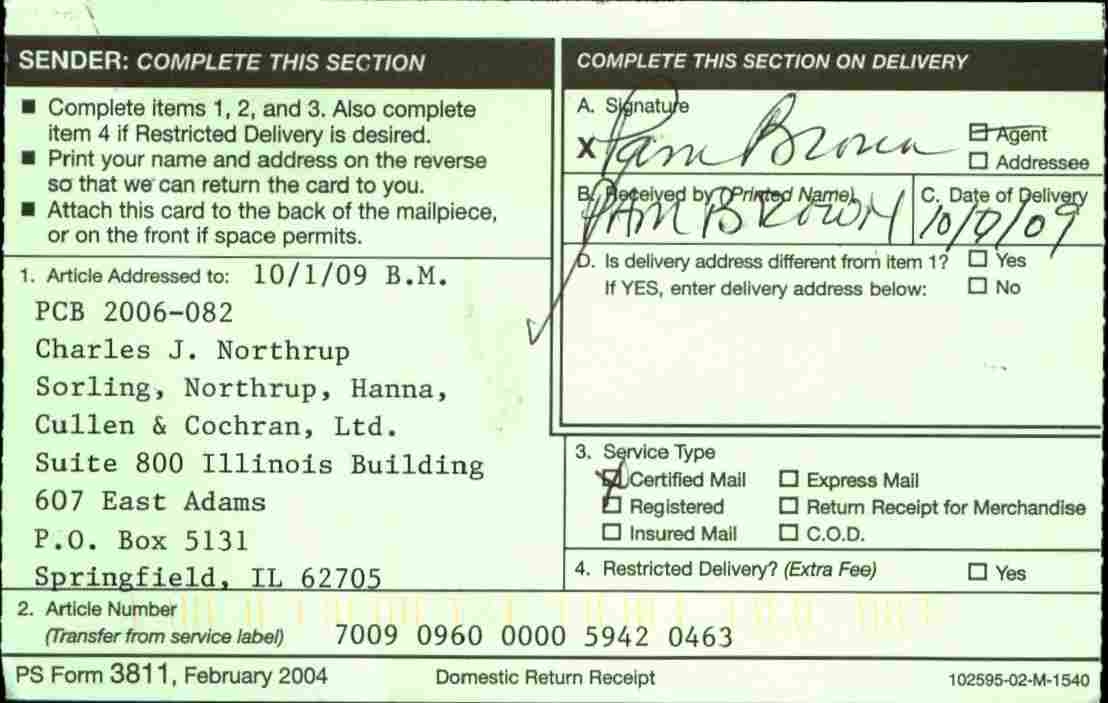 SENDER: COMPLETE THIS SECTION
■ Complete items 1, 2, and 3. Also complete
item 4 if Restricted Delivery is desired.
■ Print your name and address on the reverse
so that we can return the card to you.
■ Attach this card to the back of the mailpiece,
or on the front if space permits.
1. Article Addressed to: 10/1/09 B.M.
PCB 2006-082
Charles J. Northrup
Sorling, Northrup, Hanna,
Cullen & Cochran, Ltd.
Suite 800 Illinois Building
607 East Adams
P.O. Box 5131
Springfield, IL 62705
2. Article Number
(Transfer from service label) 7009 0960 0000 5942 0463
COMPLETE THIS SECTION ON DELIVERY
A. Signature
X Pam Brown
☐ Agent
☐ Addressee
B. Received by (Printed Name)
PAM BROWN
C. Date of Delivery
D. Is delivery address different from item 1? ☐ Yes
If YES, enter delivery address below: ☐ No
3. Service Type
☒ Certified Mail ☐ Express Mail
☐ Registered ☐ Return Receipt for Merchandise
☐ Insured Mail ☐ C.O.D.
4. Restricted Delivery? (Extra Fee) ☐ Yes
PS Form 3811, February 2004 Domestic Return Receipt 102595-02-M-1540